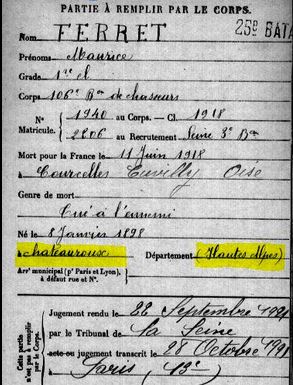 PARTIE À REMPLIR PAR LE CORPS.
Nom FERRET
25e BATA
Prénoms Maurice
Grade 1re cl
Corps 106e Bon de chasseurs
N° 1940 au Corps. — Cl. 1918
Matricule. 2206 au Recrutement Seine 3e Bau
Mort pour la France le 11 Juin 1918
à Courcelles Oise
Genre de mort
Tué à l'ennemi
Né le 8 Janvier 1898
à chateauroux Département (Hautes Alpes)
Arrt municipal (pr Paris et Lyon),
à défaut rue et N°.
Cette partie
n'est pas à remplir
par le Corps.
Jugement rendu le 22 Septembre
par le Tribunal de La Seine
acte ou jugement transcrit le 28 Octobre
à Paris 13e